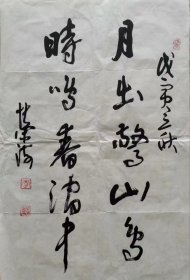 戊寅之秋
月出驚山鳥
時鳴春澗中